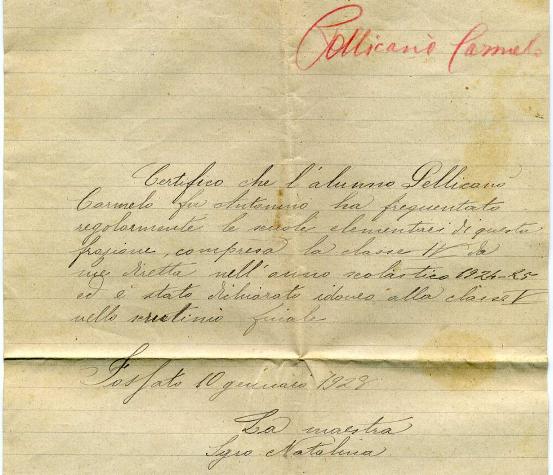 Pellicanò Carmelo
Certifico che l'alunno Pellicanò
Carmelo fu Antonino ha frequentato
regolarmente le scuole elementari di questa
frazione, compresa la classe IV da
me diretta nell'anno scolastico 1924-25
ed è stato dichiarato idoneo alla classe V
nello scrutinio finale
Fossato 10 gennaio 1928
La maestra
Sgro Natalina